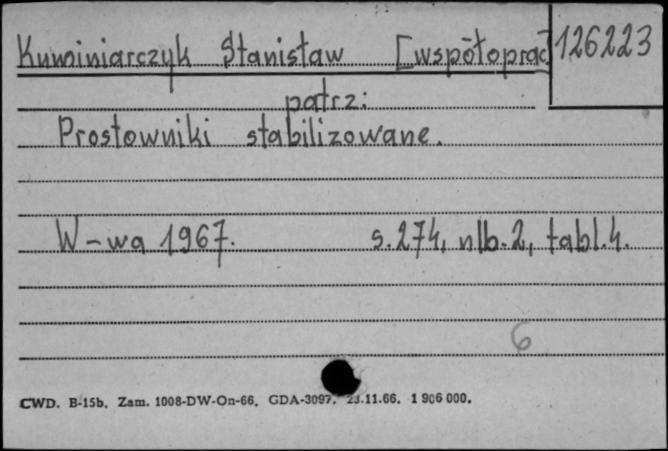 Kuminiarczyk Stanisław [współoprac 126223
patrz:
Prostowniki stabilizowane.
W-wa 1967. s.274, nlb.2, tabl.4.
6
CWD. B-15b. Zam. 1008-DW-On-66. GDA-3097. 23.11.66. 1 906 000.